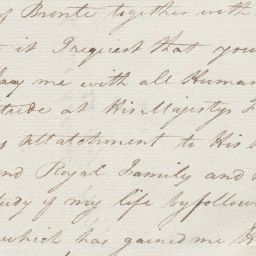 of Bronte together with
it I request that you
lay me with all Human
titude at His Majestys
Attatchment to His
and Royal Family and
tudy of my life by follow
which has gained me